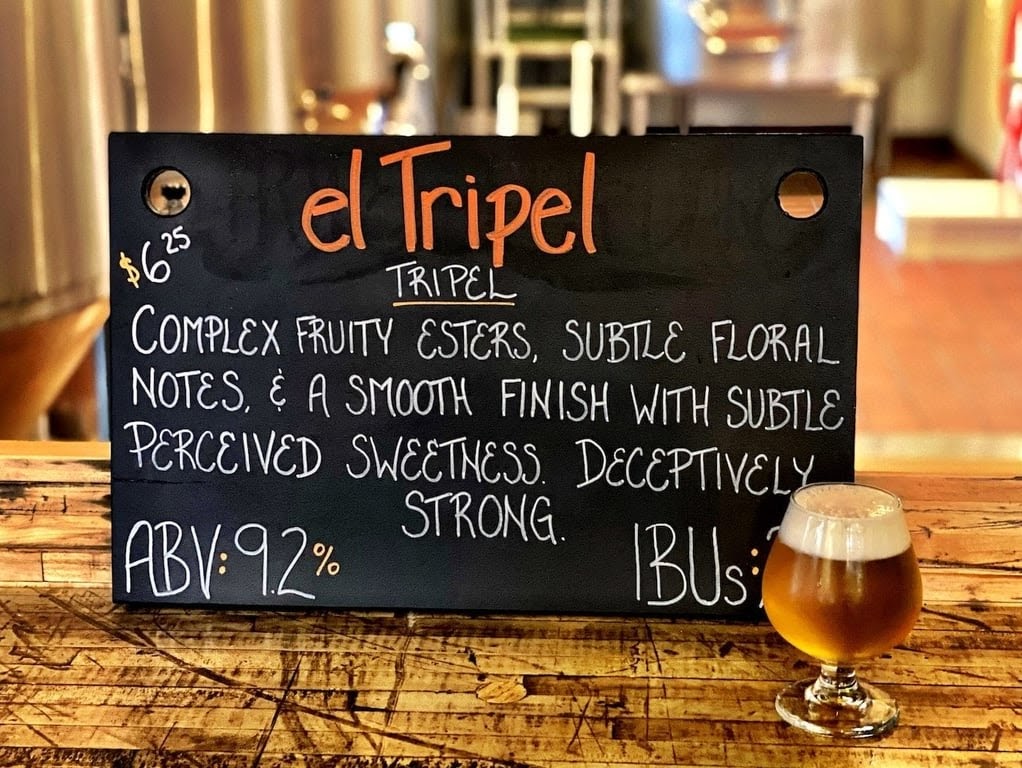 el Tripel
$6.25
TRIPEL
COMPLEX FRUITY ESTERS, SUBTLE FLORAL
NOTES, & A SMOOTH FINISH WITH SUBTLE
PERCEIVED SWEETNESS. DECEPTIVELY
STRONG.
ABV: 9.2%
IBUs: